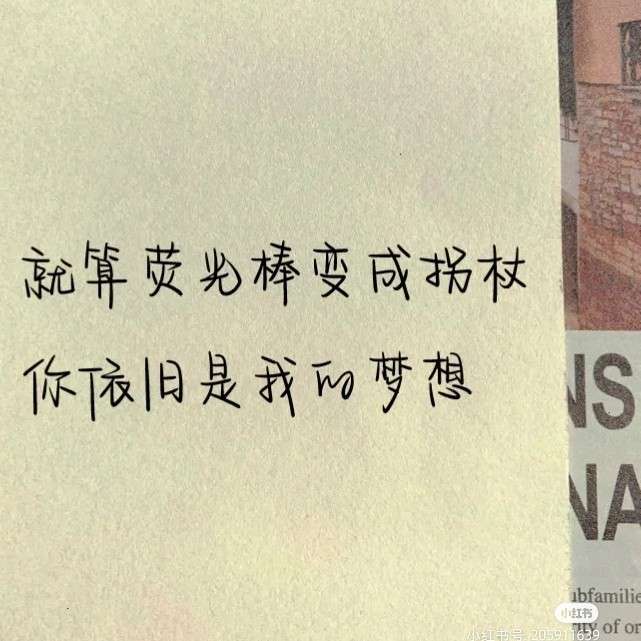 就算荧光棒变成拐杖
你依旧是我的梦想
NS
NA
ubfamilie
ity of or
小红书
小红书号:205911639